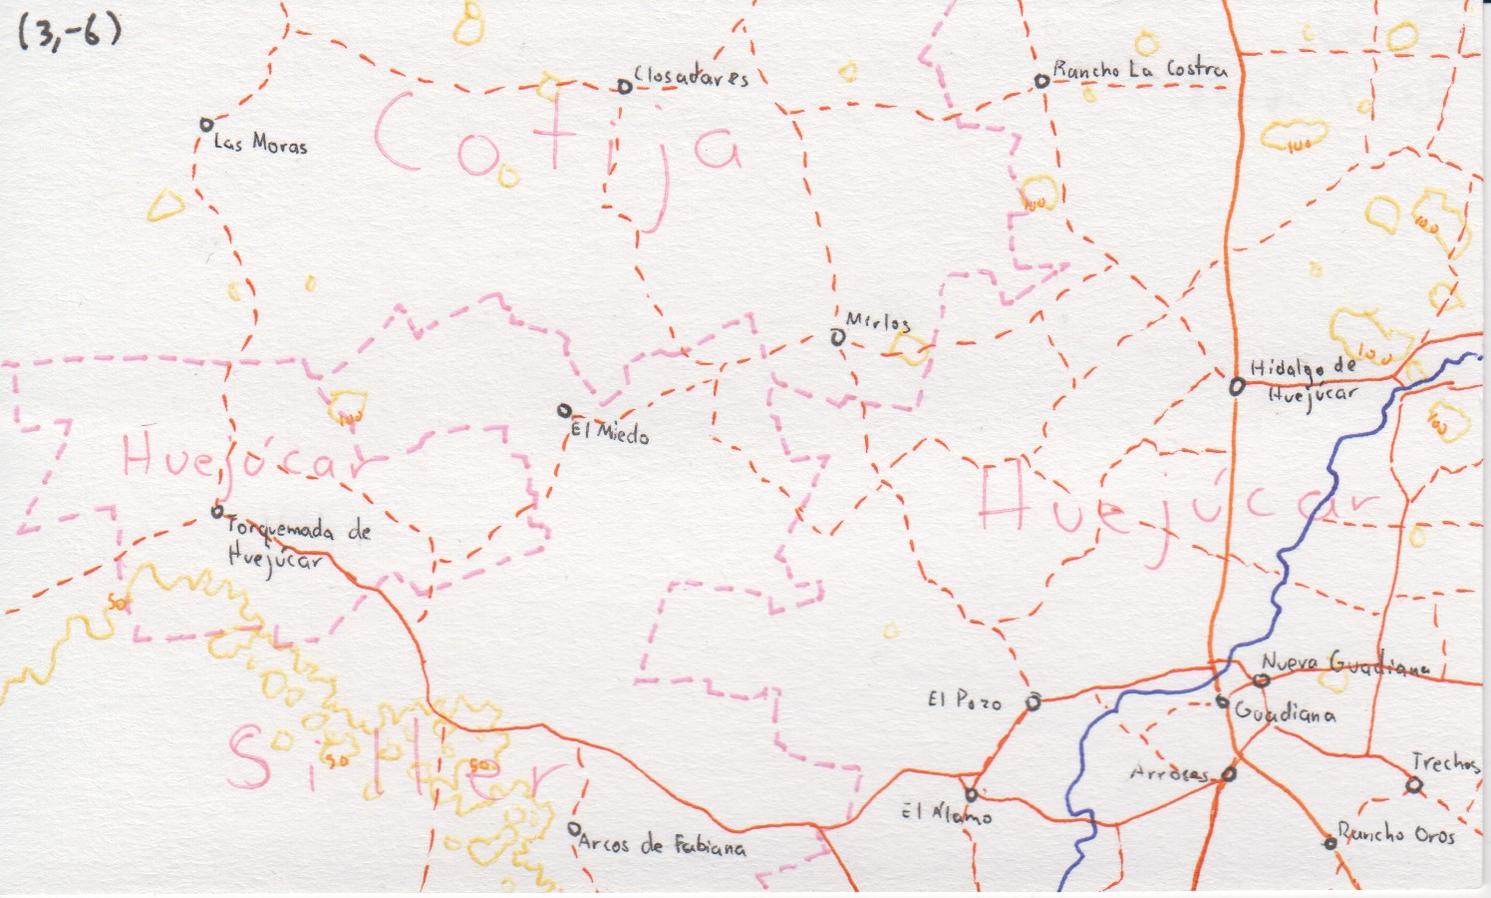 (3,-6)
Closadares
Rancho La Costra
Las Moras
Cotija
100
100
100
Mirlos
100
Hidalgo de
Huejúcar
100
100
El Miedo
Huejúcar
Huejúcar
Torquemada de
Huejúcar
50
Nueva Guadiana
El Pozo
Guadiana
Siller
50
50
Arroces
Trechos
El Álamo
Arcos de Fabiana
Rancho Oros